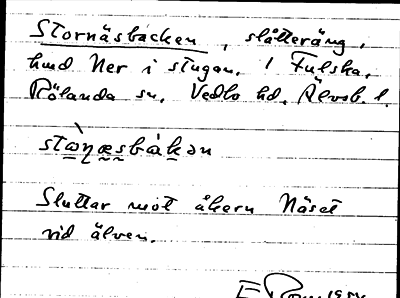 Stornäsbacken, slåtteräng,
hmd Ner i stugan, 1 Fulska,
Rölanda sn, Vedbo hd, Älvsb. l.
stɷ̀ŋæsbàkən
Sluttar mot åkern Näset
vid älven.